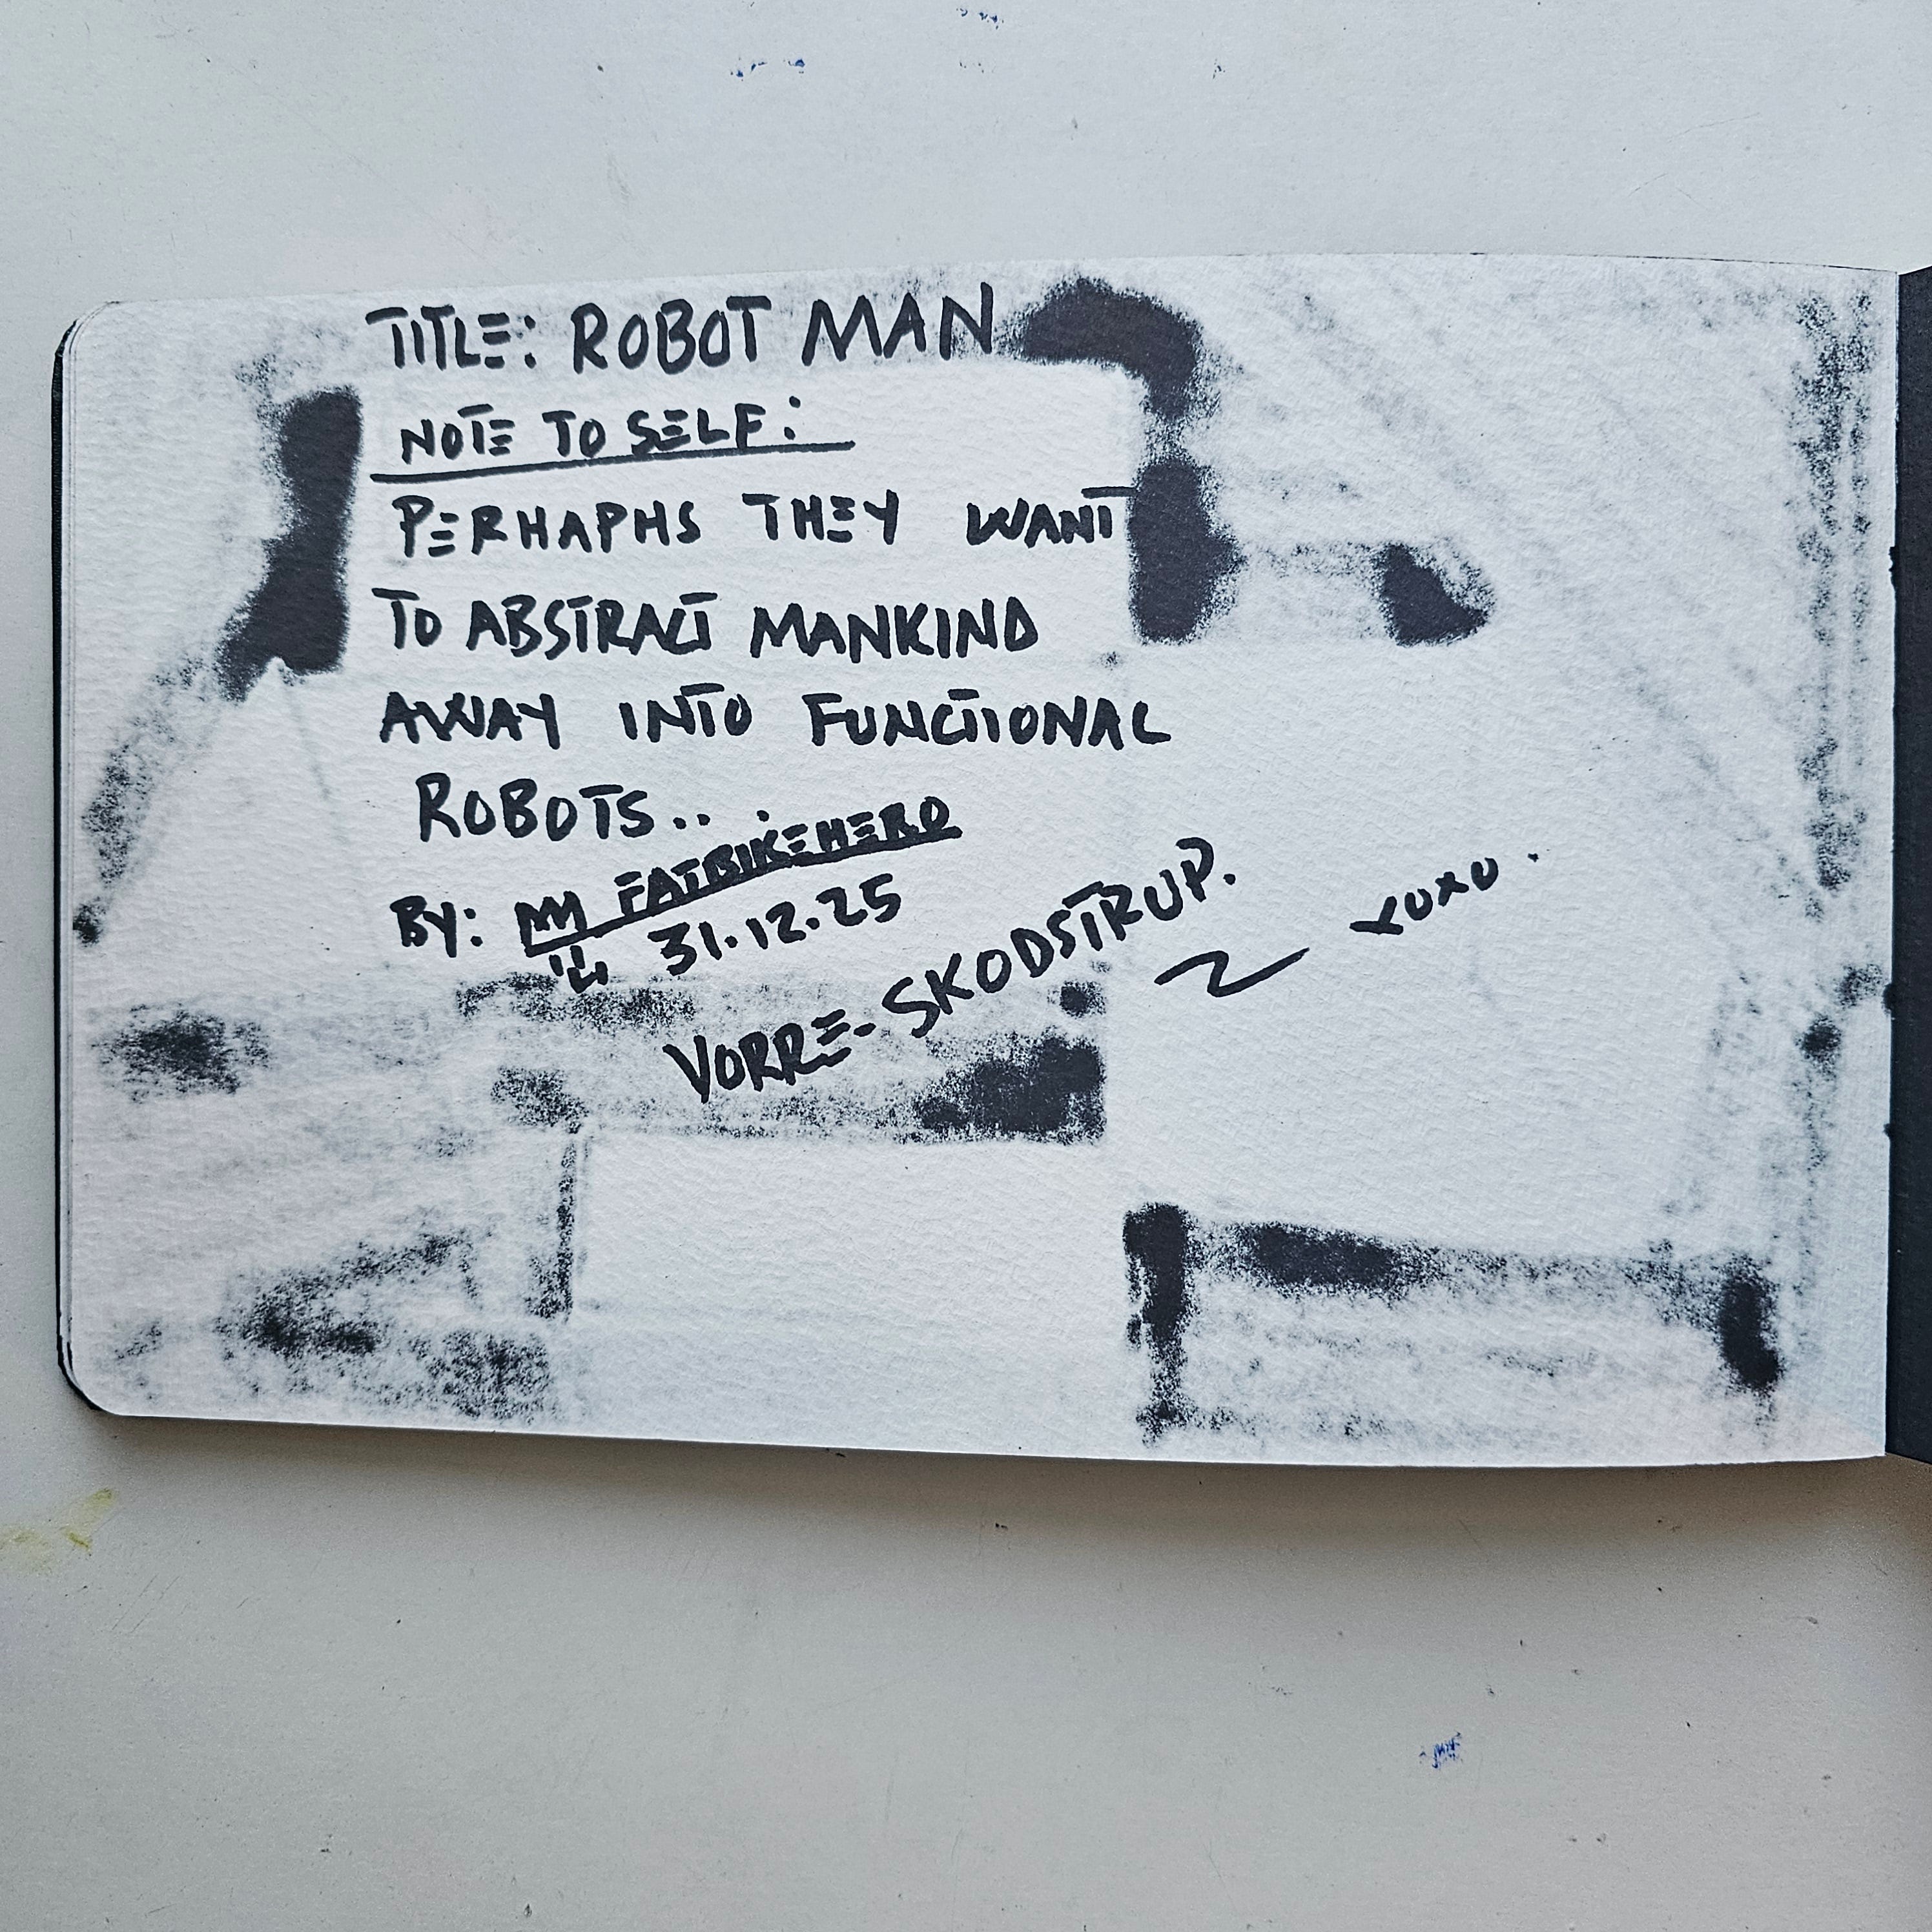 TITLE: ROBOT MAN
NOTE TO SELF:
PERHAPHS THEY WANT
TO ABSTRACT MANKIND
AWAY INTO FUNCTIONAL
ROBOTS...
BY: FATBIKEHERO
31.12.25
VORRE-SKODSTRUP.
XOXO.